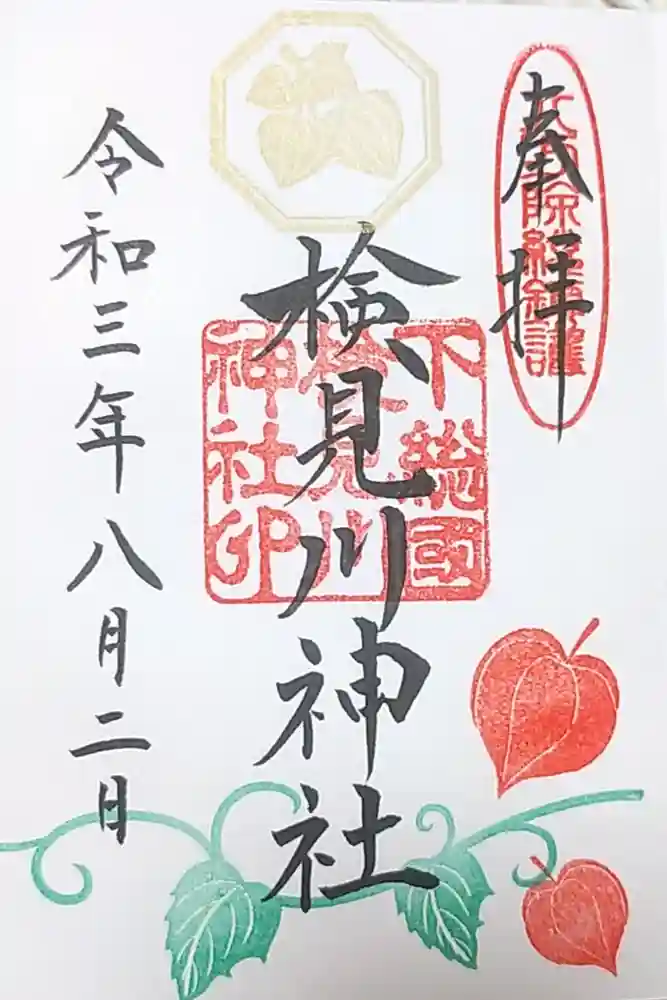 奉拝
下総國
検見川
神社印
検見川神社
令和三年八月二日